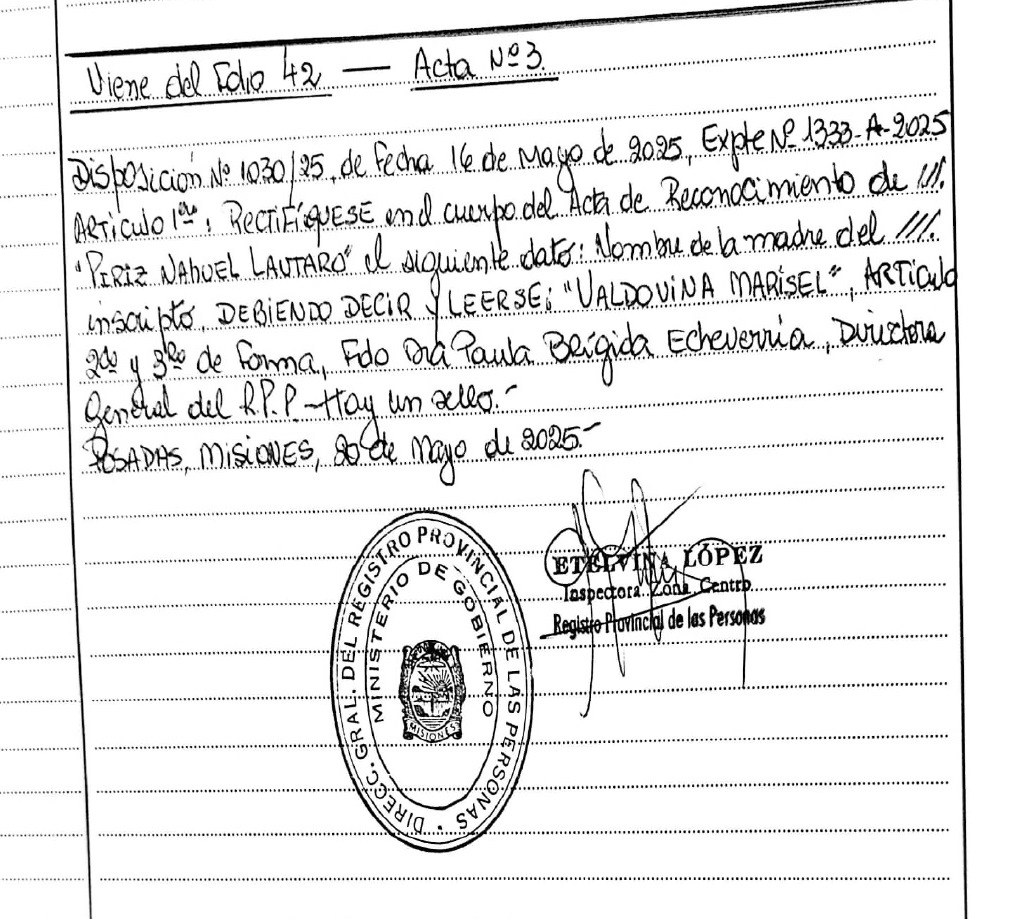 Viene del Folio 42 — Acta Nº 3.
Disposición Nº 1030/25, de fecha 16 de Mayo de 2025, Expte Nº 1333-A-2025
Artículo 1ro: RECTIFÍQUESE en el cuerpo del Acta de Reconocimiento de ///.
"PIRIZ NAHUEL LAUTARO" el siguiente dato: Nombre de la madre del ///.
inscripto, DEBIENDO DECIR Y LEERSE: "VALDOVINA MARISEL", ARTÍCULO
2do y 3Ro de forma, Fdo Dra Paula Brígida Echeverria, Directora
General del R.P.P - Hay un sello.-
POSADAS, MISIONES, 20 de Mayo de 2025.-
DIRECC. GRAL. DEL REGISTRO PROVINCIAL DE LAS PERSONAS
MINISTERIO DE GOBIERNO
MISIONES
ETELVINA LÓPEZ
Inspectora Zona Centro
Registro Provincial de las Personas